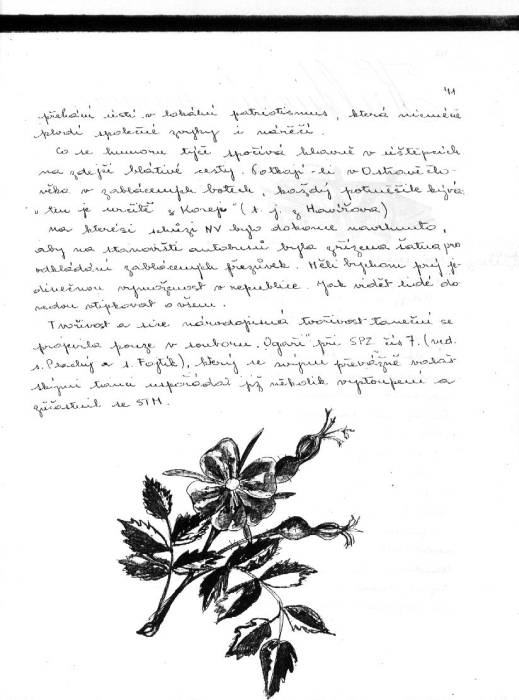 41
přehání ústí v lokální patriotismus, která nicméně
plodí společné zvyky i nářečí.
Co se humoru týče spočívá hlavně v úštěpcích
na zdejší blátivé cesty. Potkají-li v Ostravě člo-
věka v zablácených botech, každý potměšile kývá:
"ten je určitě z Koreje" (t. j. z Havířova)
Na kterési schůzi NV bylo dokonce navrhnuto,
aby na stanovišti autobusů byla zřízena šatna pro
odkládání zablácených přezůvek. Měli bychom prý je-
dinečnou vymoženost v republice. Jak vidět lidé do-
vedou vtipkovat o všem.
Tvořivost a sice národopisná tvořivost taneční se
projevila pouze v souboru "Ogaři" při SPZ čís 7. (ved.
s. Prachý a s. Fojtík), který se svými převážně valaš-
skými tanci uspořádal již několik vystoupení a
zúčastnil se STM.